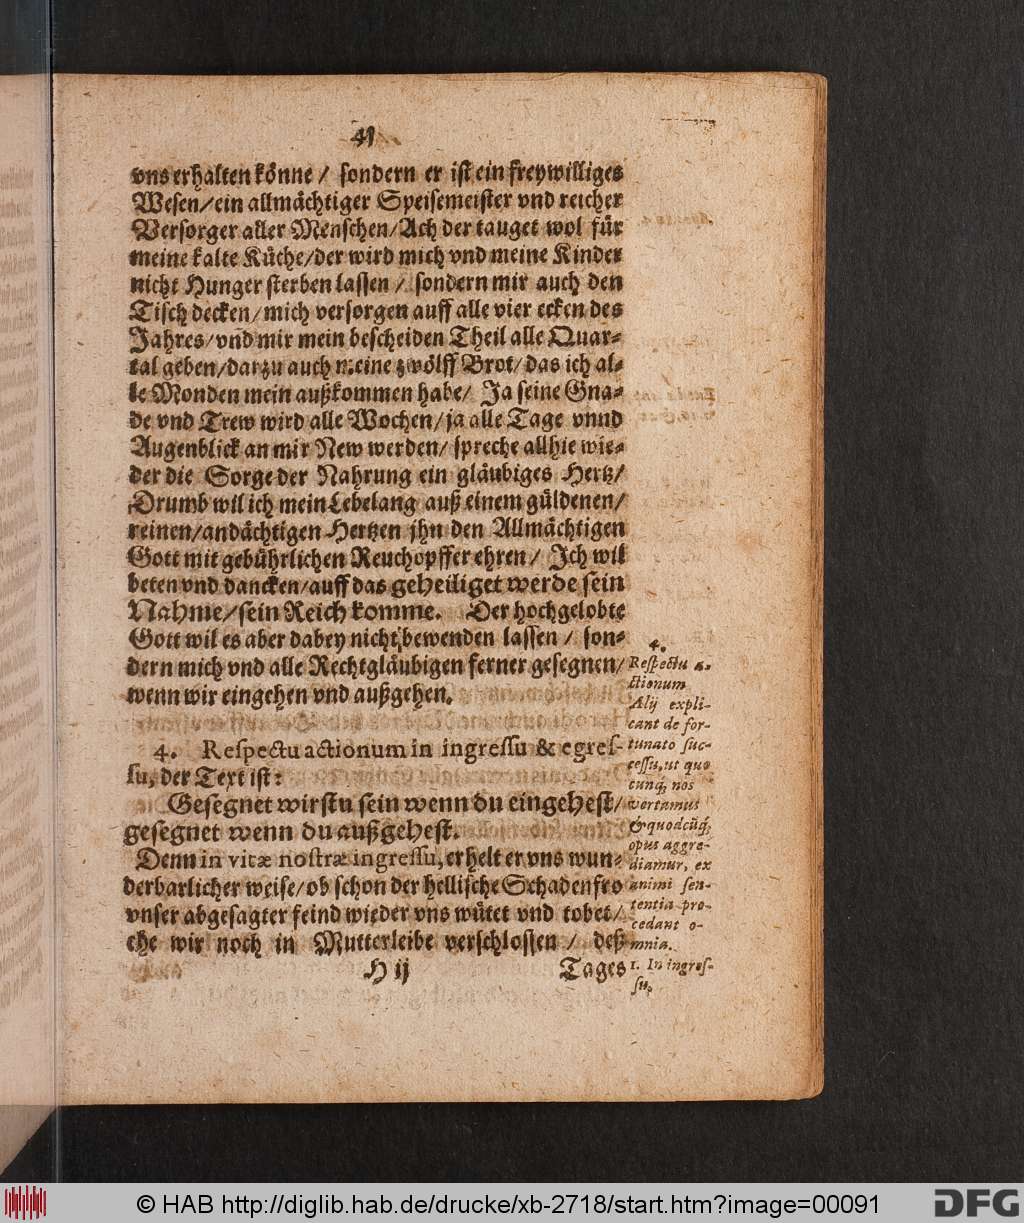 41
vns erhalten könne / sondern er ist ein freywilliges
Wesen/ein allmächtiger Speisemeister vnd reicher
Versorger aller Menschen/Ach der tauget wol für
meine kalte Küche/der wird mich vnd meine Kinder
nicht Hunger sterben lassen / sondern mir auch den
Tisch decken/mich versorgen auff alle vier ecken des
Jahres/vnd mir mein bescheiden Theil alle Quar-
tal geben/darzu auch meine zwölff Brot/das ich al-
le Monden mein außkommen habe/ Ja seine Gna-
de vnd Trew wird alle Wochen/ja alle Tage vnnd
Augenblick an mir New werden/spreche allhie wie-
der die Sorge der Nahrung ein gläubiges Hertz/
Drumb wil ich mein Lebelang auß einem güldenen/
reinen/andächtigen Hertzen jhn den Allmächtigen
Gott mit gebührlichen Reuchopffer ehren/ Ich wil
beten vnd dancken/auff das geheiliget werde sein
Nahme/sein Reich komme. Der hochgelobte
Gott wil es aber dabey nicht bewenden lassen / son-
dern mich vnd alle Rechtgläubigen ferner gesegnen/
wenn wir eingehen vnd außgehen.
4. Respectu actionum in ingressu & egres-
su, der Text ist:
Gesegnet wirstu sein wenn du eingehest/
gesegnet wenn du außgehest.
Denn in vitæ nostræ ingressu, erhelt er vns wun-
derbarlicher weise/ob schon der hellische Schadenfro
vnser abgesagter feind wieder vns wütet vnd tobet/
ehe wir noch in Mutterleibe verschlossen / deß
H ij
Tages
4.
Respectu a-
ctionum
Alij expli-
cant de for-
tunato suc-
cessu, ut quo
cunq; nos
vertamus
& quodcūq;
opus aggre-
diamur, ex
animi sen-
tentia pro-
cedant o-
mnia.
1. In ingres-
su.
© HAB http://diglib.hab.de/drucke/xb-2718/start.htm?image=00091
DFG